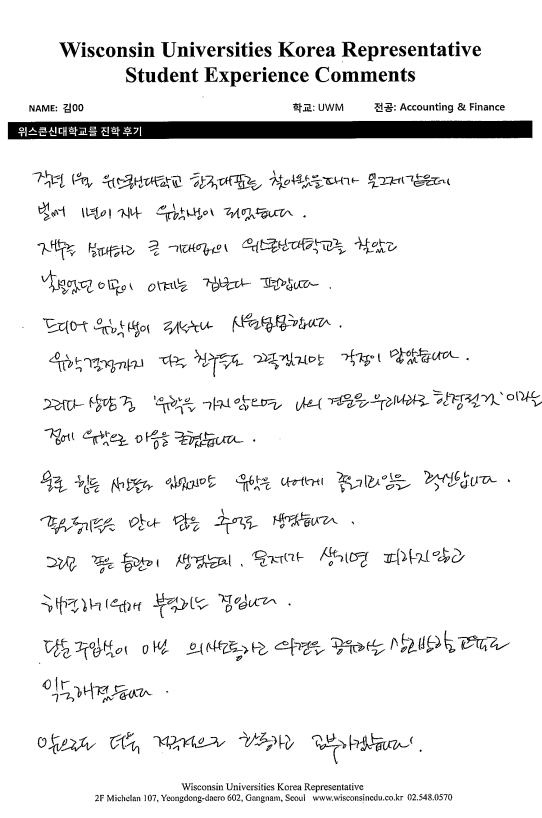 Wisconsin Universities Korea Representative
Student Experience Comments
NAME: 김00 학교: UWM 전공: Accounting & Finance
위스콘신대학교를 진학 후기
작년 1월 위스콘신대학교 한국대표를 찾아왔을때가 엊그제같은데
벌써 1년이 지나 유학생이 되었습니다.
재수를 실패하고 큰 기대없이 위스콘신대학교를 찾았고
낯설었던 이곳이 이제는 집보다 편합니다.
드디어 유학생이 되었구나 시원섭섭합니다.
유학결정까지 다른 친구들도 그렇겠지만 걱정이 많았습니다.
그러다 상담 중 '유학을 가지 않으면 나의 견문은 우리나라로 한정될것' 이라는
점에 유학으로 마음을 굳혔습니다.
물론 힘든 시간들도 있었지만 유학은 나에게 좋은기회임을 확신합니다.
좋은동기들을 만나 많은 추억도 생겼습니다.
그리고 좋은 습관이 생겼는데, 문제가 생기면 피하지않고
해결하기위해 부딪히는 점입니다.
단순 주입식이 아닌 의사소통하고 의견을 공유하는 상호방향 교육도
익숙해졌습니다.
앞으로도 더욱 적극적으로 활동하고 공부하겠습니다!
Wisconsin Universities Korea Representative
2F Michelan 107, Yeongdong-daero 602, Gangnam, Seoul www.wisconsinedu.co.kr 02.548.0570